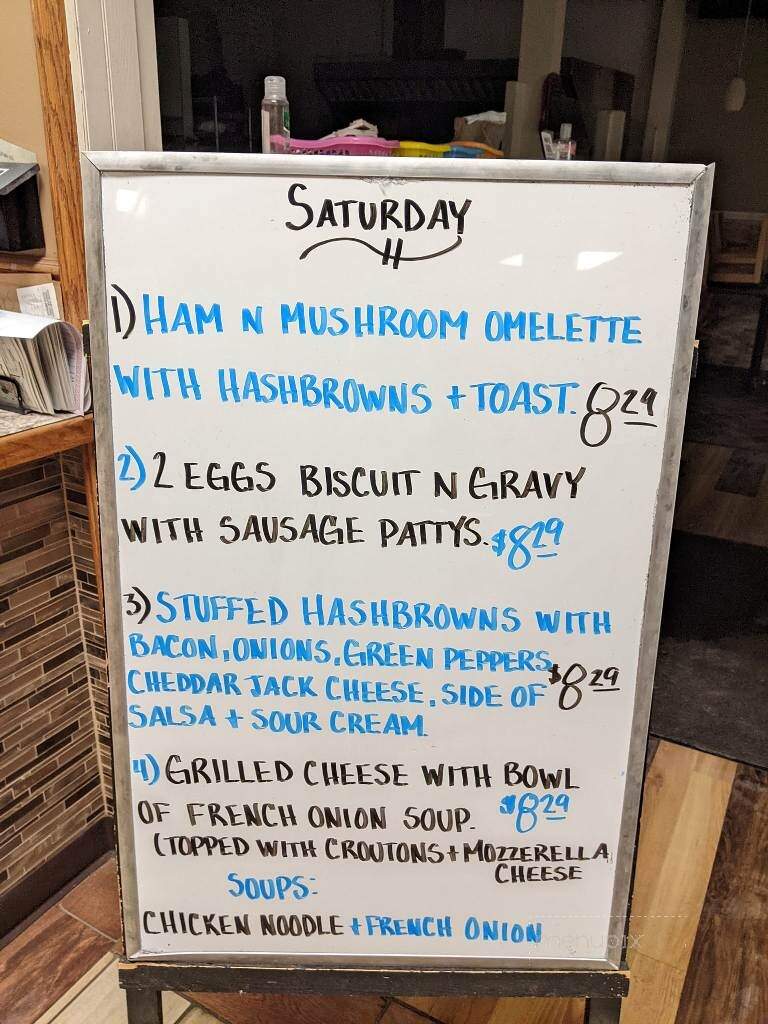 SATURDAY
1) HAM N MUSHROOM OMELETTE
WITH HASHBROWNS + TOAST. 8 29
2) 2 EGGS BISCUIT N GRAVY
WITH SAUSAGE PATTYS. $8 29
3) STUFFED HASHBROWNS WITH
BACON, ONIONS, GREEN PEPPERS,
CHEDDAR JACK CHEESE, SIDE OF $8 29
SALSA + SOUR CREAM.
4) GRILLED CHEESE WITH BOWL
OF FRENCH ONION SOUP. $8 29
(TOPPED WITH CROUTONS + MOZZERELLA
CHEESE
SOUPS:
CHICKEN NOODLE + FRENCH ONION
menupix